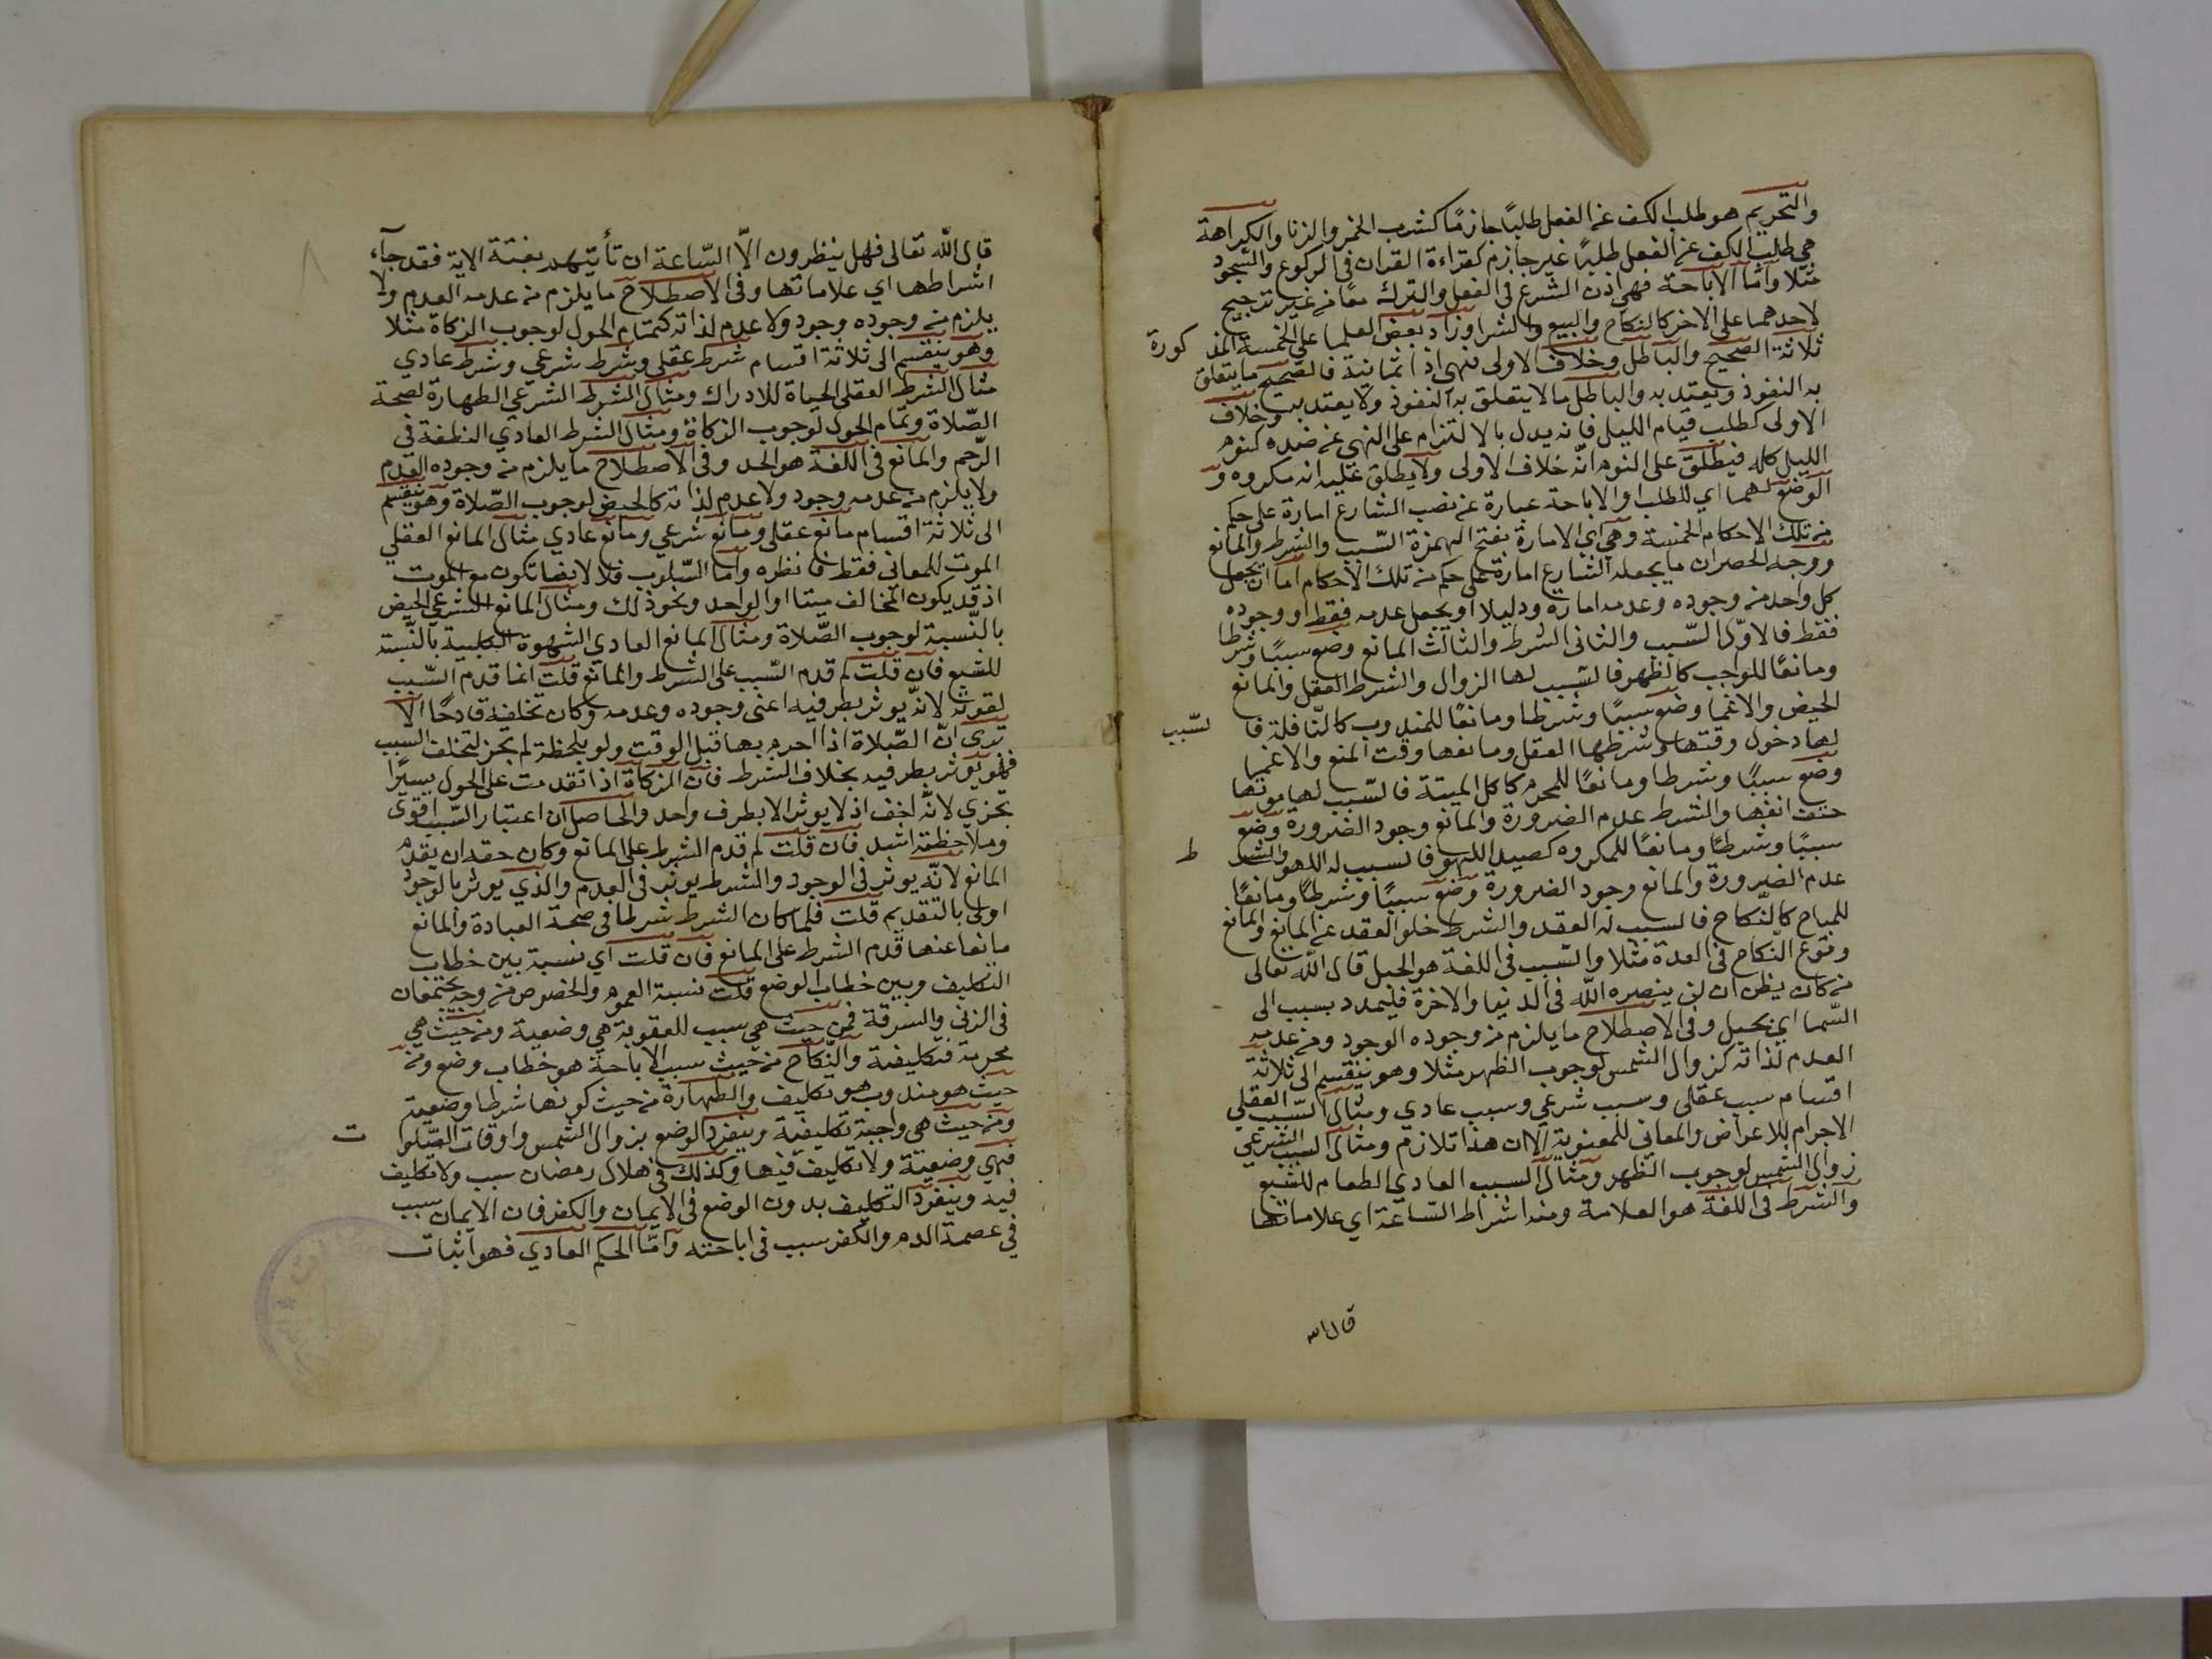 والتحريم هو طلب الكف عن الفعل طلبًا جازمًا كشرب الخمر والزنا والكراهة
هي طلب الكف عن الفعل طلبًا غير جازم كقراءة القران في الركوع والسجود
مثلا واما الاباحة فهي اذن الشرع في الفعل والترك معًا من غير ترجيح
لاحدهما على الاخر كالنكاح والبيع والشرا وزاد بعض العلما على الخمسة المذكورة
ثلاثة الصحيح والباطل وخلاف الاولى فهي اذا ثمانية فالصحيح ما يتعلق
به النفوذ ويعتد به والباطل ما لا يتعلق به النفوذ ولا يعتد به وخلاف
الاولى كطلب قيام الليل فانه يدل بالالتزام على النهي عن ضده كنوم
الليل كله فيطلق على النوم انّه خلاف الاولى ولا يطلق عليه انه مكروه و
الوضع لهما اي للطلب والاباحة عبارة عن نصب الشارع امارة على حكم
من تلك الاحكام الخمسة وهي اي الامارة بفتح الهمزة السّبب والشرط والمانع
ووجه الحصران ما يجعله الشارع امارة على حكم من تلك الاحكام اما ان يجعل
كل واحد من وجوده وعدمه امارة ودليلا او يجعل عدمه فقط او وجوده
فقط فالاوّل السّبب والثاني الشرط والثالث المانع وضع سببًا وشرطا
ومانعًا للواجب كالظهر فالسّبب لها الزوال والشرط العقل والمانع
الحيض والاغما وضع سببًا وشرطا ومانعًا للمندوب كالنّافلة فالسّبب
لها دخول وقتها وشرطها العقل ومانعها وقت المنع والاغما
وضع سببًا وشرطا ومانعًا للمحرم كاكل الميتة فالسّبب لها موتها
حتف انفها والشرط عدم الضرورة والمانع وجود الضرورة وضع
سببًا وشرطًا ومانعًا للمكروه كصيد اللهو فالسبب له اللهو والشرط
عدم الضرورة والمانع وجود الضرورة وضع سببًا وشرطًا ومانعًا
للمباح كالنّكاح فالسبب له العقد والشرط خلو العقد عن المانع والمانع
وقوع النّكاح في العدة مثلا والسّبب في اللغة هو الحبل قال اللّه تعالى
من كان يظن ان لن ينصره اللّه في الدنيا والاخرة فليمدد بسبب الى
السّما اي بحبل وفي الاصطلاح ما يلزم من وجوده الوجود ومن عدمه
العدم لذاته كزوال الشمس لوجوب الظهر مثلا وهو ينقسم الى ثلاثة
اقسام سبب عقلي وسبب شرعي وسبب عادي ومثال السّبب العقلي
الاجرام للاعراض والمعاني للمعنوية الا ان هذا تلازم ومثال السبب الشرعي
زوال الشمس لوجوب الظهر ومثال السبب العادي الطعام للشبع
والشرط في اللغة هو العلامة ومنه اشراط السّاعة اي علاماتها
قال الله
قال اللّه تعالى فهل ينظرون الاّ السّاعة ان تأتيهم بغتة الاية فقد جآء
اشراطها اي علاماتها وفي الاصطلاح ما يلزم من عدمه العدم ولا
يلزم من وجوده وجود ولا عدم لذاته كتمام الحول لوجوب الزكاة مثلا
وهو ينقسم الى ثلاثة اقسام شرط عقلي وشرط شرعي وشرط عادي
مثال الشرط العقلي الحياة للادراك ومثال الشرط الشرعي الطهارة لصحة
الصّلاة وتمام الحول لوجوب الزكاة ومثال الشرط العادي النطفة في
الرّحم والمانع في اللغة هو الحد وفي الاصطلاح ما يلزم من وجوده العدم
ولا يلزم من عدمه وجود ولا عدم لذاته كالحيض لوجوب الصّلاة وهو ينقسم
الى ثلاثة اقسام مانع عقلي ومانع شرعي ومانع عادي مثال المانع العقلي
الموت للمعاني فقط فانظره واما السّلوب فلا لانها تكون مع الموت
اذ قد يكون المخالف ميتا او الواحد ونحو ذلك ومثال المانع الشرعي الحيض
بالنّسبة لوجوب الصّلاة ومثال المانع العادي الشهوة الكلبية بالنّسبة
للشبع فان قلت لم قدم السّبب على الشرط والمانع قلت انما قدم السّبب
لقوته لانّه يوثر بطرفيه اعني وجوده وعدمه وكان تخلفه قادحًا الا
ترى انّ الصّلاة اذا احرم بها قبل الوقت ولو بلحظة لم تجز لتخلف السبب
فهو يوثر بطرفيه بخلاف الشرط فان الزكاة اذا تقدمت على الحول يسيرًا
تجزي لانّه اخف اذ لا يوثر الا بطرف واحد والحاصل ان اعتبار السّبب اقوى
وملاحظته اشد فان قلت لم قدم الشرط على المانع وكان حقه ان يقدم
المانع لانّه يوثر في الوجود والشرط يوثر في العدم والذي يوثر بالوجود
اولى بالتقديم قلت فلما كان الشرط شرطا في صحة العبادة والمانع
مانعا عنها قدم الشرط على المانع فان قلت اي نسبة بين خطاب
التكليف وبين خطاب الوضع قلت نسبة العموم والخصوص من وجه يجتمعان
في الزنى والسرقة فمن حيث هي سبب للعقوبة هي وضعية ومن حيث هي
محرمة فتكليفية والنّكاح من حيث سبب الاباحة هو خطاب وضع ومن
حيث هو مندوب هو تكليف والطهارة من حيث كونها شرطا وضعية
ومن حيث هي واجبة تكليفية وينفرد الوضع بزوال الشمس واوقات الصّلوات
فهي وضعيّة ولا تكليف فيها وكذلك في هلال رمضان سبب ولا تكليف
فيه وينفرد التكليف بدون الوضع في الايمان والكفر فان الايمان سبب
في عصمة الدم والكفر سبب في اباحته وامّا الحكم العادي فهو اثبات